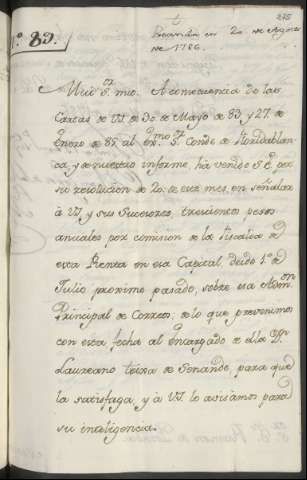 275
t
N.º 89.
en 20 de Agosto
de 1786.
Muy S.or mio. A consecuencia de las
Cartas de VS de 30 de Mayo de 83 y 27 de
Enero de 85 al Ex.mo S.r Conde de Floridablan-
ca, y de nuestro informe, ha venido S.E. por
su resolucion de 20 de este mes, en señalar
à VS y sus Sucesores, trescientos pesos
anuales por comision de la Fiscalia de
esta Renta en esa Capital, desde 1.º de
Julio proximo pasado, sobre esa Adm.on
Principal de Correos, de lo que prevenimos
con esta fecha al encargado de ella D.n
Laureano de Senande, para que
la satisfaga, y à VS. lo avisamos para
su inteligencia.